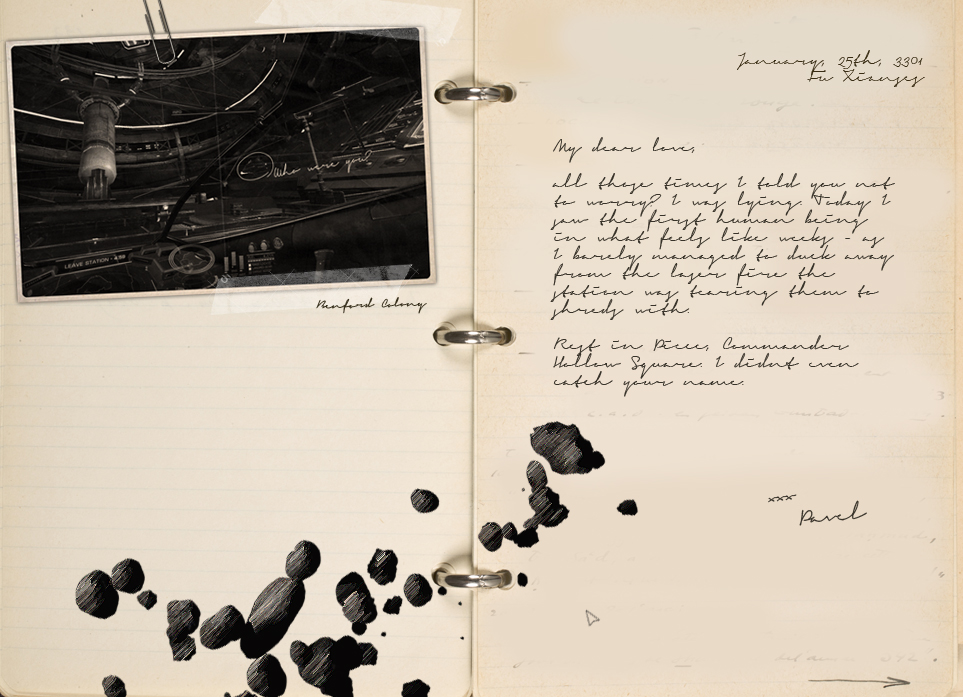 Who were you?
LEAVE STATION
Benford Colony
January, 25th, 3301
Fu Xianses
My dear love,
all those times I told you not
to worry? I was lying. Today I
saw the first human being
in what feels like weeks - as
I barely managed to duck away
from the laser fire the
station was tearing them to
shreds with.
Rest in Piece, Commander
Hollow Square. I didnt even
catch your name.
xxx
Pavel